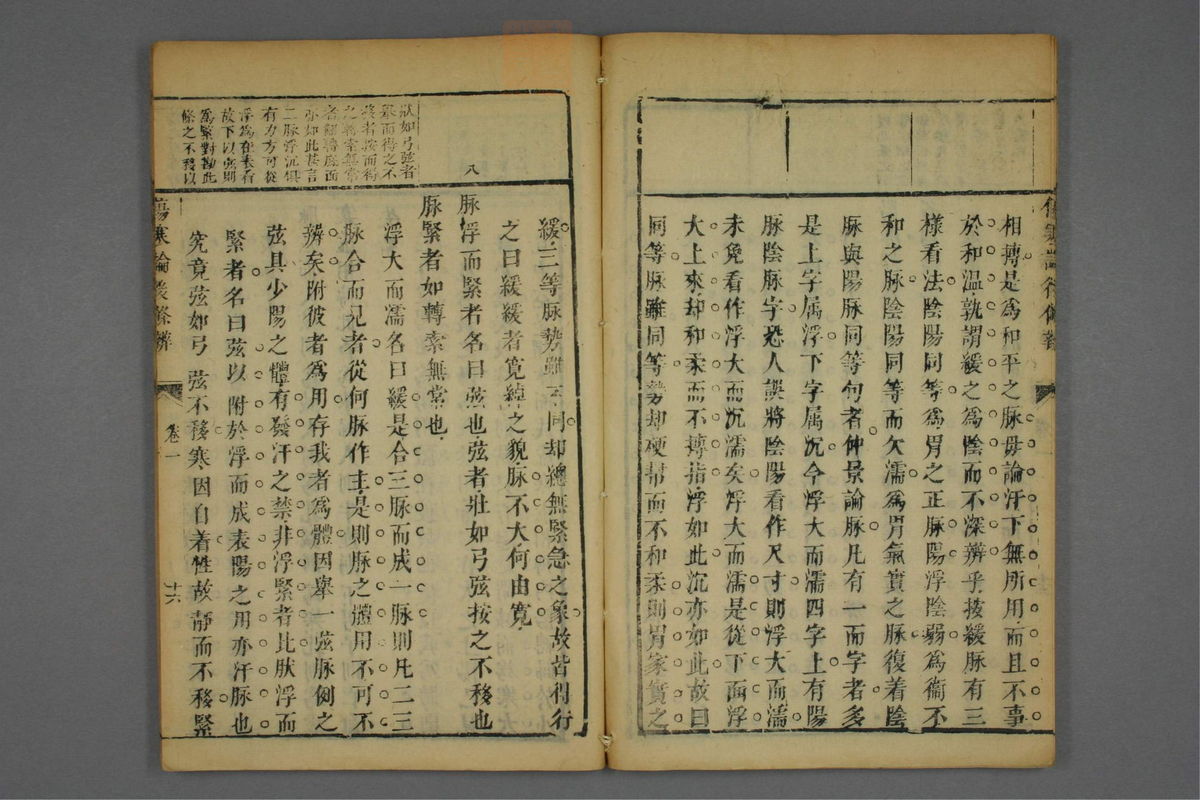 相摶是爲和平之脉毋論汗下無所用而且不事
於和溫孰謂緩之爲陰而不深辨乎按緩脉有三
樣看法陰陽同等爲胃之正脉陽浮陰弱爲衞不
和之脉陰陽同等而欠濡爲胃氣實之脉復着陰
脉與陽脉同等句者仲景論脉凡有一而字者多
是上字属浮下字属沉今浮大而濡四字上有陽
脉陰脉字恐人誤將陰陽看作尺寸則浮大而濡
未免看作浮大而沉濡矣浮大而濡是從下面浮
大上來却和柔而不摶指浮如此沉亦如此故曰
同等脉雖同等勢却梗幇而不和柔則胃家實之
緩三等脉勢雖不同却總無緊急之象故皆得行
之曰緩緩者寬綽之貌脉不大何由寬
脉浮而緊者名曰弦也弦者壯如弓弦按之不移也
脉緊者如轉索無常也
浮大而濡名曰緩是合三脉而成一脉則凡二三
脉合而見者從何脉作主是則脉之體用不可不
辨矣附彼者爲用存我者爲體因舉一弦脉例之
弦具少陽之體有發汗之禁非浮緊者比肰浮而
緊者名曰弦以附於浮而成表陽之用亦汗脉也
究竟弦如弓弦不移寒因自着性故靜而不移緊
八
狀如弓弦者
舉而得之不
移者按而得
之轉索無常
者翻轉底面
亦如此甚言
二脉浮沉俱
有力方可從
浮爲在表看
故下以弦則
爲緊對勘此
條之不移以
傷寒論後條辨
卷一
十六